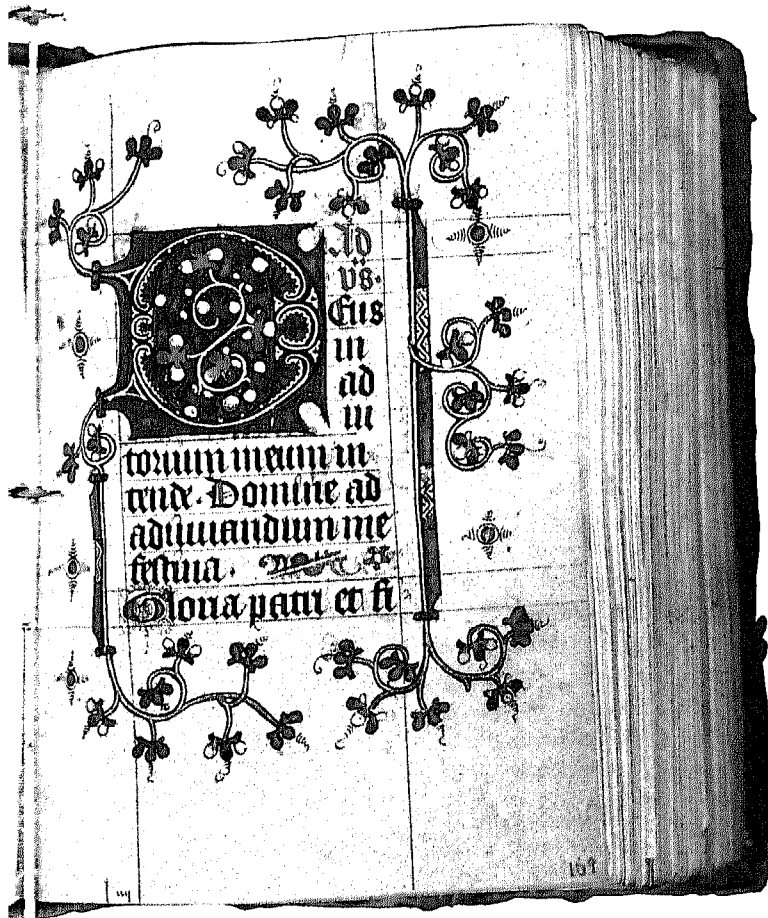 Ad
vs.
Deus
in
ad
iu
torium meum in
tende. Domine ad
adiuuandum me
festina.
Gloria patri et fi
169